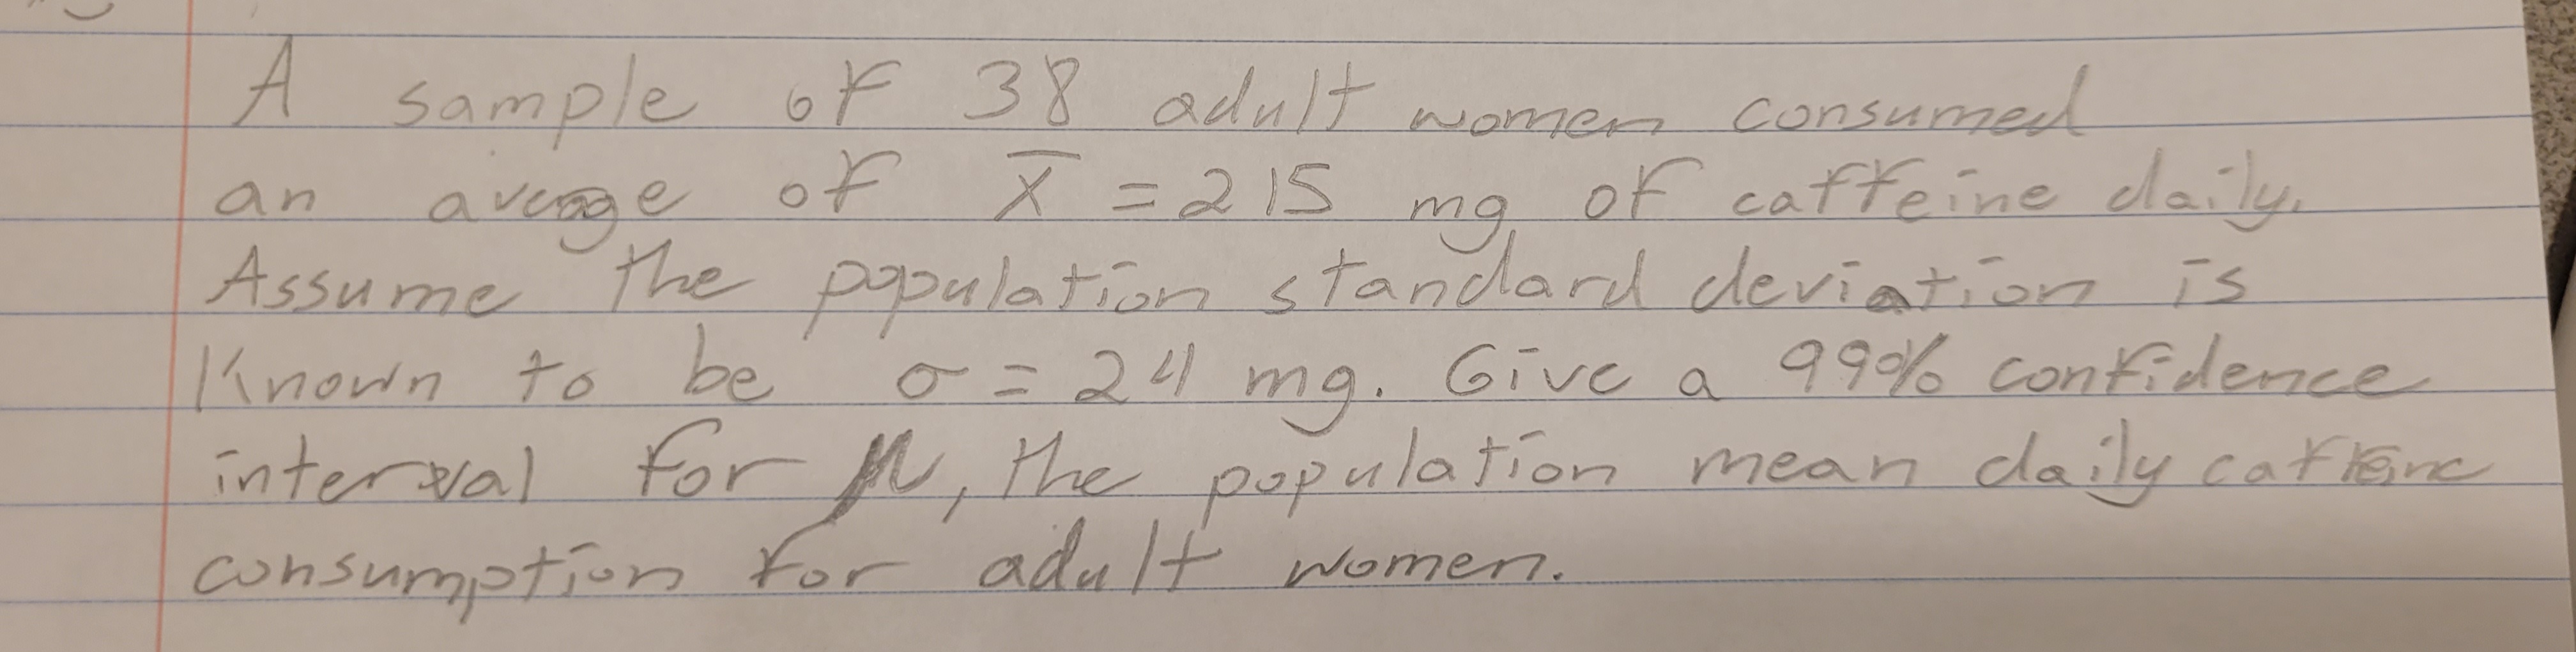 A sample of 38 adult women consumed
an average of x̄ = 215 mg of caffeine daily.
Assume the population standard deviation is
known to be σ = 24 mg. Give a 99% confidence
interval for μ, the population mean daily caffeine
consumption for adult women.